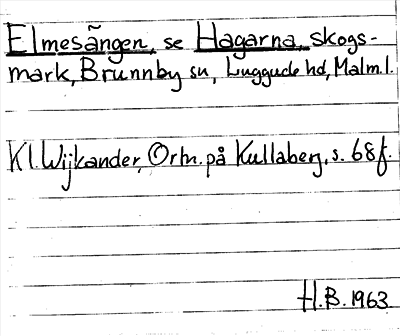 Elmesången, se Hagarna, skogs-
mark, Brunnby sn, Luggude hd, Malm.l.
Kl. Wijkander, Ortn. på Kullaberg, s. 68f.
H.B. 1963